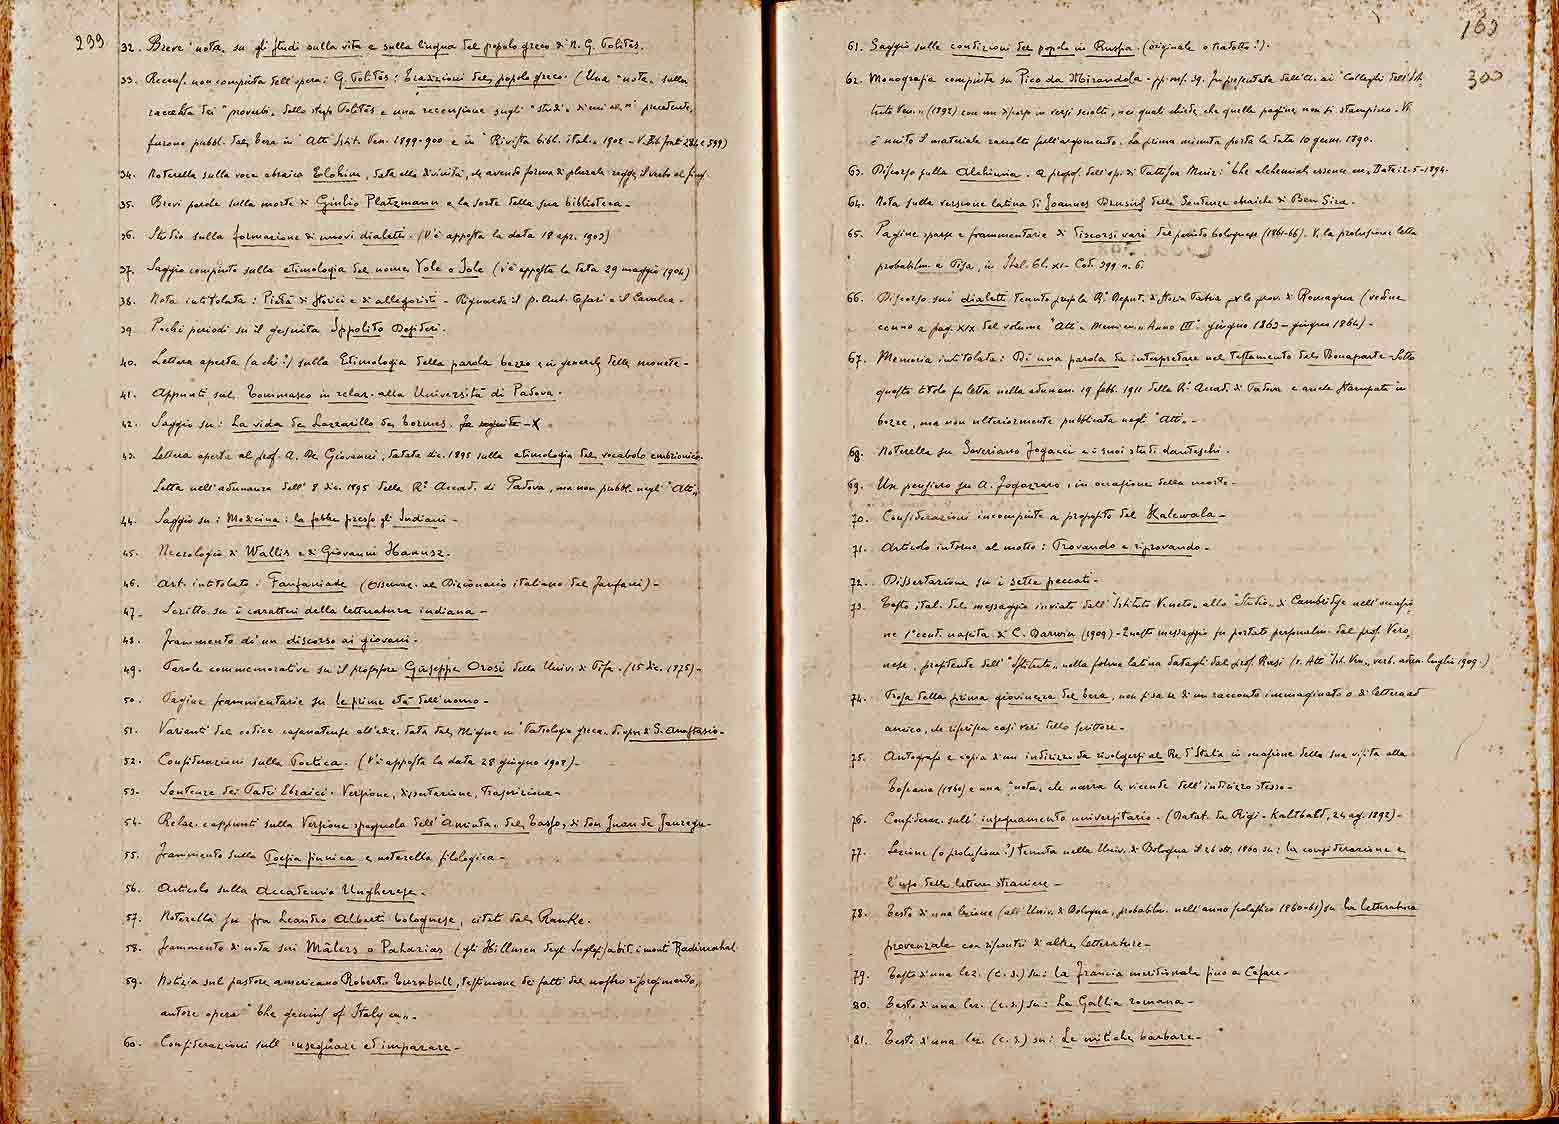 299
32. Breve "nota" su gli studi sulla vita e sulla lingua del popolo greco di N. G. Politès.
33. Recens. non compiuta dell'opera: G. Politès: Tradizioni del popolo greco. (Una "nota" sulla
raccolta dei "proverbi" dello stesso Politès e una recensione sugli "studi" di cui al n° precedente,
furono pubbl. dal Teza in "Atti Istit. Ven. 1899-900 e in "Rivista bibl. ital." 1902 - V. Bib. 284 e 599)
34. Noterella sulla voce ebraica Eolohim, data alla divinità, che avendo forma di plurale regge il verbo al sing.
35. Brevi parole sulla morte di Giulio Platzmann e la sorte della sua biblioteca -
36. Studio sulla formazione di nuovi dialetti. (V'è apposta la data 18 apr. 1903)
37. Saggio compiuto sulla etimologia del nome Yole o Jole (v'è apposta la data 29 maggio 1904)
38. Nota intitolata: Pietà di storici e di allegoristi - Riguarda il p. Ant. Cesari e il Cavalca -
39. Pochi periodi su il gesuita Ippolito Desideri.
40. Lettera aperta (a chi?) sulla Etimologia della parola bezzo e in generale delle monete -
41. Appunti sul Tommaseo in relaz. alla Università di Padova.
42. Saggio su: La vida de Lazzarillo de Tormes.
43. Lettera aperta al prof. A. De Giovanni, datata dic. 1895 sulla etimologia del vocabolo embrionico.
Letta nell'adunanza dell' 8 dic. 1895 della R.a Accad. di Padova, ma non pubbl. negli "Atti"
44. Saggio su: Medicina: la febbre presso gli Indiani -
45. Necrologio di Wallis e di Giovanni Hanusz.
46. Art. intitolato: Fanfaniade (Osservaz. al Dizionario italiano del Fanfani) -
47. Scritto su i caratteri della letteratura indiana -
48. Frammento di un discorso ai giovani.
49. Parole commemorative su il professore Giuseppe Orosi della Univ. di Pisa. (15 dic. 1875) -
50. Pagine frammentarie su le prime età dell'uomo -
51. Varianti del codice casanatense all'ediz. data dal Migne in "Patrologia greca" di S. Anastasio -
52. Considerazioni sulla Poetica. (V'è apposta la data 28 giugno 1908) -
53. Sentenze dei Padri Ebraici. Versione, dissertazione, trascrizione -
54. Relaz. e appunti sulla Versione spagnola dell' "Aminta" del Tasso, di don Juan de Jauregu -
55. Frammento sulla Poesia finnica e noterella filologica -
56. Articolo sulla Accademia Ungherese -
57. Noterella su fra Leandro Alberti bolognese, citato dal Ranke.
58. Frammento di nota sui Mâlers o Paharias (gli Hillmen degl' Inglesi) abit. i monti Radjmahal
59. Notizia sul pastore americano Roberto Turnbull, testimone dei fatti del nostro risorgimento,
autore opera "The genius of Italy
60. Considerazioni sull' insegnare ed imparare -
163
300
61. Saggio sulle condizioni del popolo in Russia. (originale o tradotto?).
62. Monografia compiuta su Pico da Mirandola - pp. ms. 39. Fu presentata dall'A. ai "Colleghi dell'Isti
tuto Ven." (1892) con un discorso in versi sciolti, nei quali chiede che quelle pagine non si stampino. Vi
è unito il materiale raccolto sull'argomento. La prima minuta porta la data 10 genn. 1890.
63. Discorso sulla Alchimia. A propos. dell'op. di Pattison Muir: "The alchemical essence Data: 2-5-1894.
64. Nota sulla versione latina di Joannes Drusius delle Sentenze ebraiche di Ben Sira.
65. Pagine sparse e frammentarie di discorsi vari del periodo bolognese (1861-66). V. la prolusione letta
probabilm. a Pisa, in Ital. Cl. XI - Cod. 399 n. 6.
66. Discorso sui dialetti tenuto presso la R.a Deput. di Storia Patria per le prov. di Romagna (vedine
cenno a pag. XIX del volume "Atti e Memorie" Anno III° giugno 1863 - giugno 1864) -
67. Memoria intitolata: Di una parola da interpretare nel testamento del Bonaparte - Sotto
questo titolo fu letta nella adunan. 19 febb. 1911 della R.a Accad. di Padova e anche stampata in
bozze, ma non ulteriormente pubblicata negli "Atti" -
68. Noterella su Severiano Fogacci e i suoi studi danteschi.
69. Un pensiero su A. Fogazzaro, in occasione della morte -
70. Considerazioni incompiute a proposito del Kalewala -
71. Articolo intorno al motto: Provando e riprovando -
72. Dissertazione su i sette peccati -
73. Testo ital. del messaggio inviato dall' "Istituto Veneto" allo "Studio" di Cambridge nell'occasio,
ne 1° cent. nascita di C. Darwin (1909) - Questo messaggio fu portato personalm. dal prof. Vero,
nese, presidente dell' "Istituto" nella forma latina datagli dal prof. Rasi (v. Atti Ist. Ven., verb. adun. luglio 1909.)
74. Prosa della prima giovinezza del Teza, non si sa se di un racconto immaginato o di lettera ad
amico, che riferisca casi veri dello scrittore -
75. Autografo e copia d'un indirizzo da rivolgersi al Re d'Italia in occasione della sua visita alla
Toscana (1860) e una "nota" che narra le vicende dell'indirizzo stesso -
76. Consideraz. sull' insegnamento universitario. (Datat. da Rigi - Kaltbald, 24 ag. 1892) -
77. Lezione (o prolusione?) tenuta nella Univ. di Bologna il 26 ott. 1860 su: la considerazione e
l'uso delle lettere straniere -
78. Testo di una lezione (all'Univ. di Bologna, probabilm. nell'anno scolastico 1860-61) su La letteratura
provenzale con riscontri di altre letterature -
79. Testo d'una lez. (c. s.) su: la Francia meridionale fino a Cesare -
80. Testo d'una lez. (c. s.) su: La Gallia romana -
81. Testo d'una lez. (c. s.) su: Le mitiche barbare -